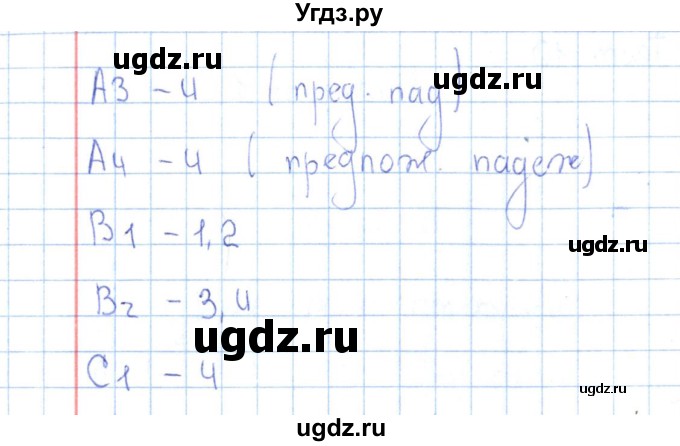 Угдз.ру
ugdz.ru ugdz.ru
А3 - 4 (пред. пад)
ugdz.ru
А4 - 4 (предлож. падеж)
ugdz.ru
В1 - 1,2
ugdz.ru
В2 - 3,4
ugdz.ru
С1 - 4
ugdz.ru
ugdz.ru